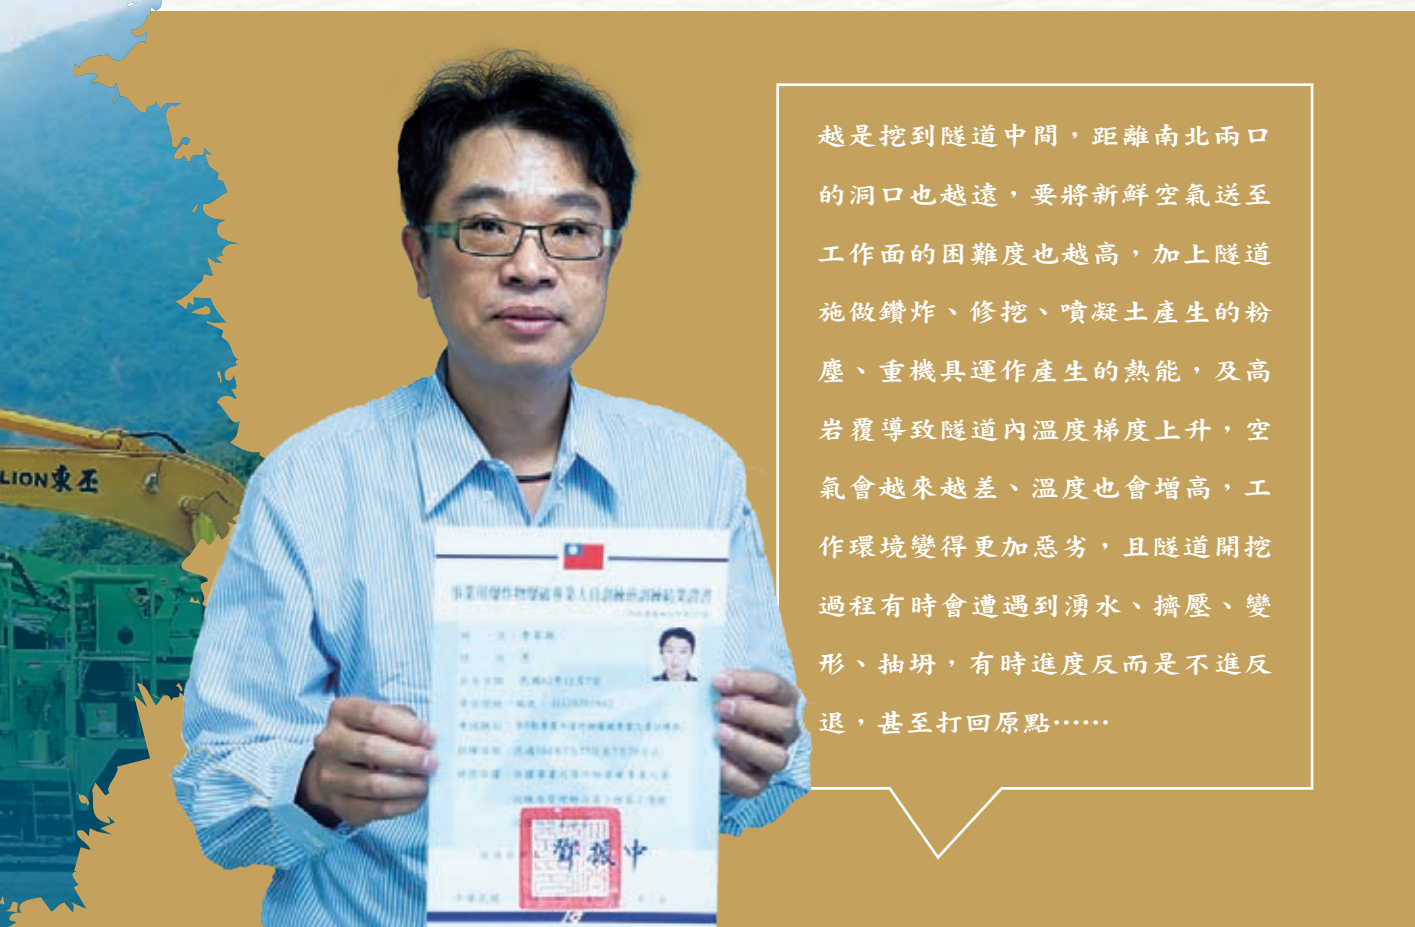 越是挖到隧道中間，距離南北兩口
的洞口也越遠，要將新鮮空氣送至
工作面的困難度也越高，加上隧道
施做鑽炸、修挖、噴凝土產生的粉
塵、重機具運作產生的熱能，及高
岩覆導致隧道內溫度梯度上升，空
氣會越來越差、溫度也會增高，工
作環境變得更加惡劣，且隧道開挖
過程有時會遭遇到湧水、擠壓、變
形、抽坍，有時進度反而是不進反
退，甚至打回原點……
LION東丕
事業用爆炸物爆破專業人員訓練班訓練結業證書
鄧振中